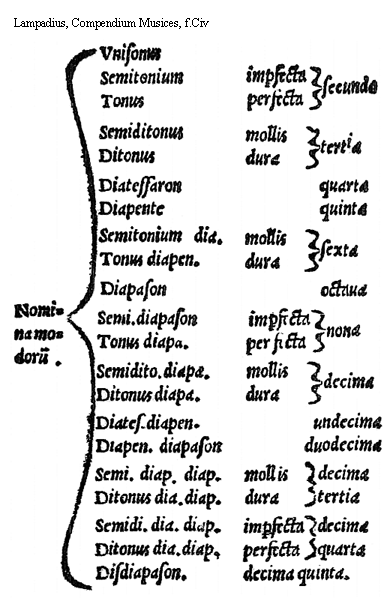 Lampadius, Compendium Musices, f.Civ
Vniſonus
Semitonium impfecta
Tonus perfecta ſecunda
Semiditonus mollis
Ditonus dura tertia
Diateſſaron quarta
Diapente quinta
Semitonium dia. mollis
Tonus diapen. dura ſexta
Diapaſon octaua
Nomi-
na mo-
dorū.
Semi.diapaſon impfecta
Tonus diapa. perfecta nona
Semidito. diapa. mollis
Ditonus diapa. dura decima
Diateſ.diapen. undecima
Diapen. diapaſon duodecima
Semi. diap. diap. mollis decima
Ditonus dia.diap. dura tertia
Semidi. dia. diap. impfecta decima
Ditonus dia.diap. perfecta quarta
Diſdiapaſon. decima quinta.